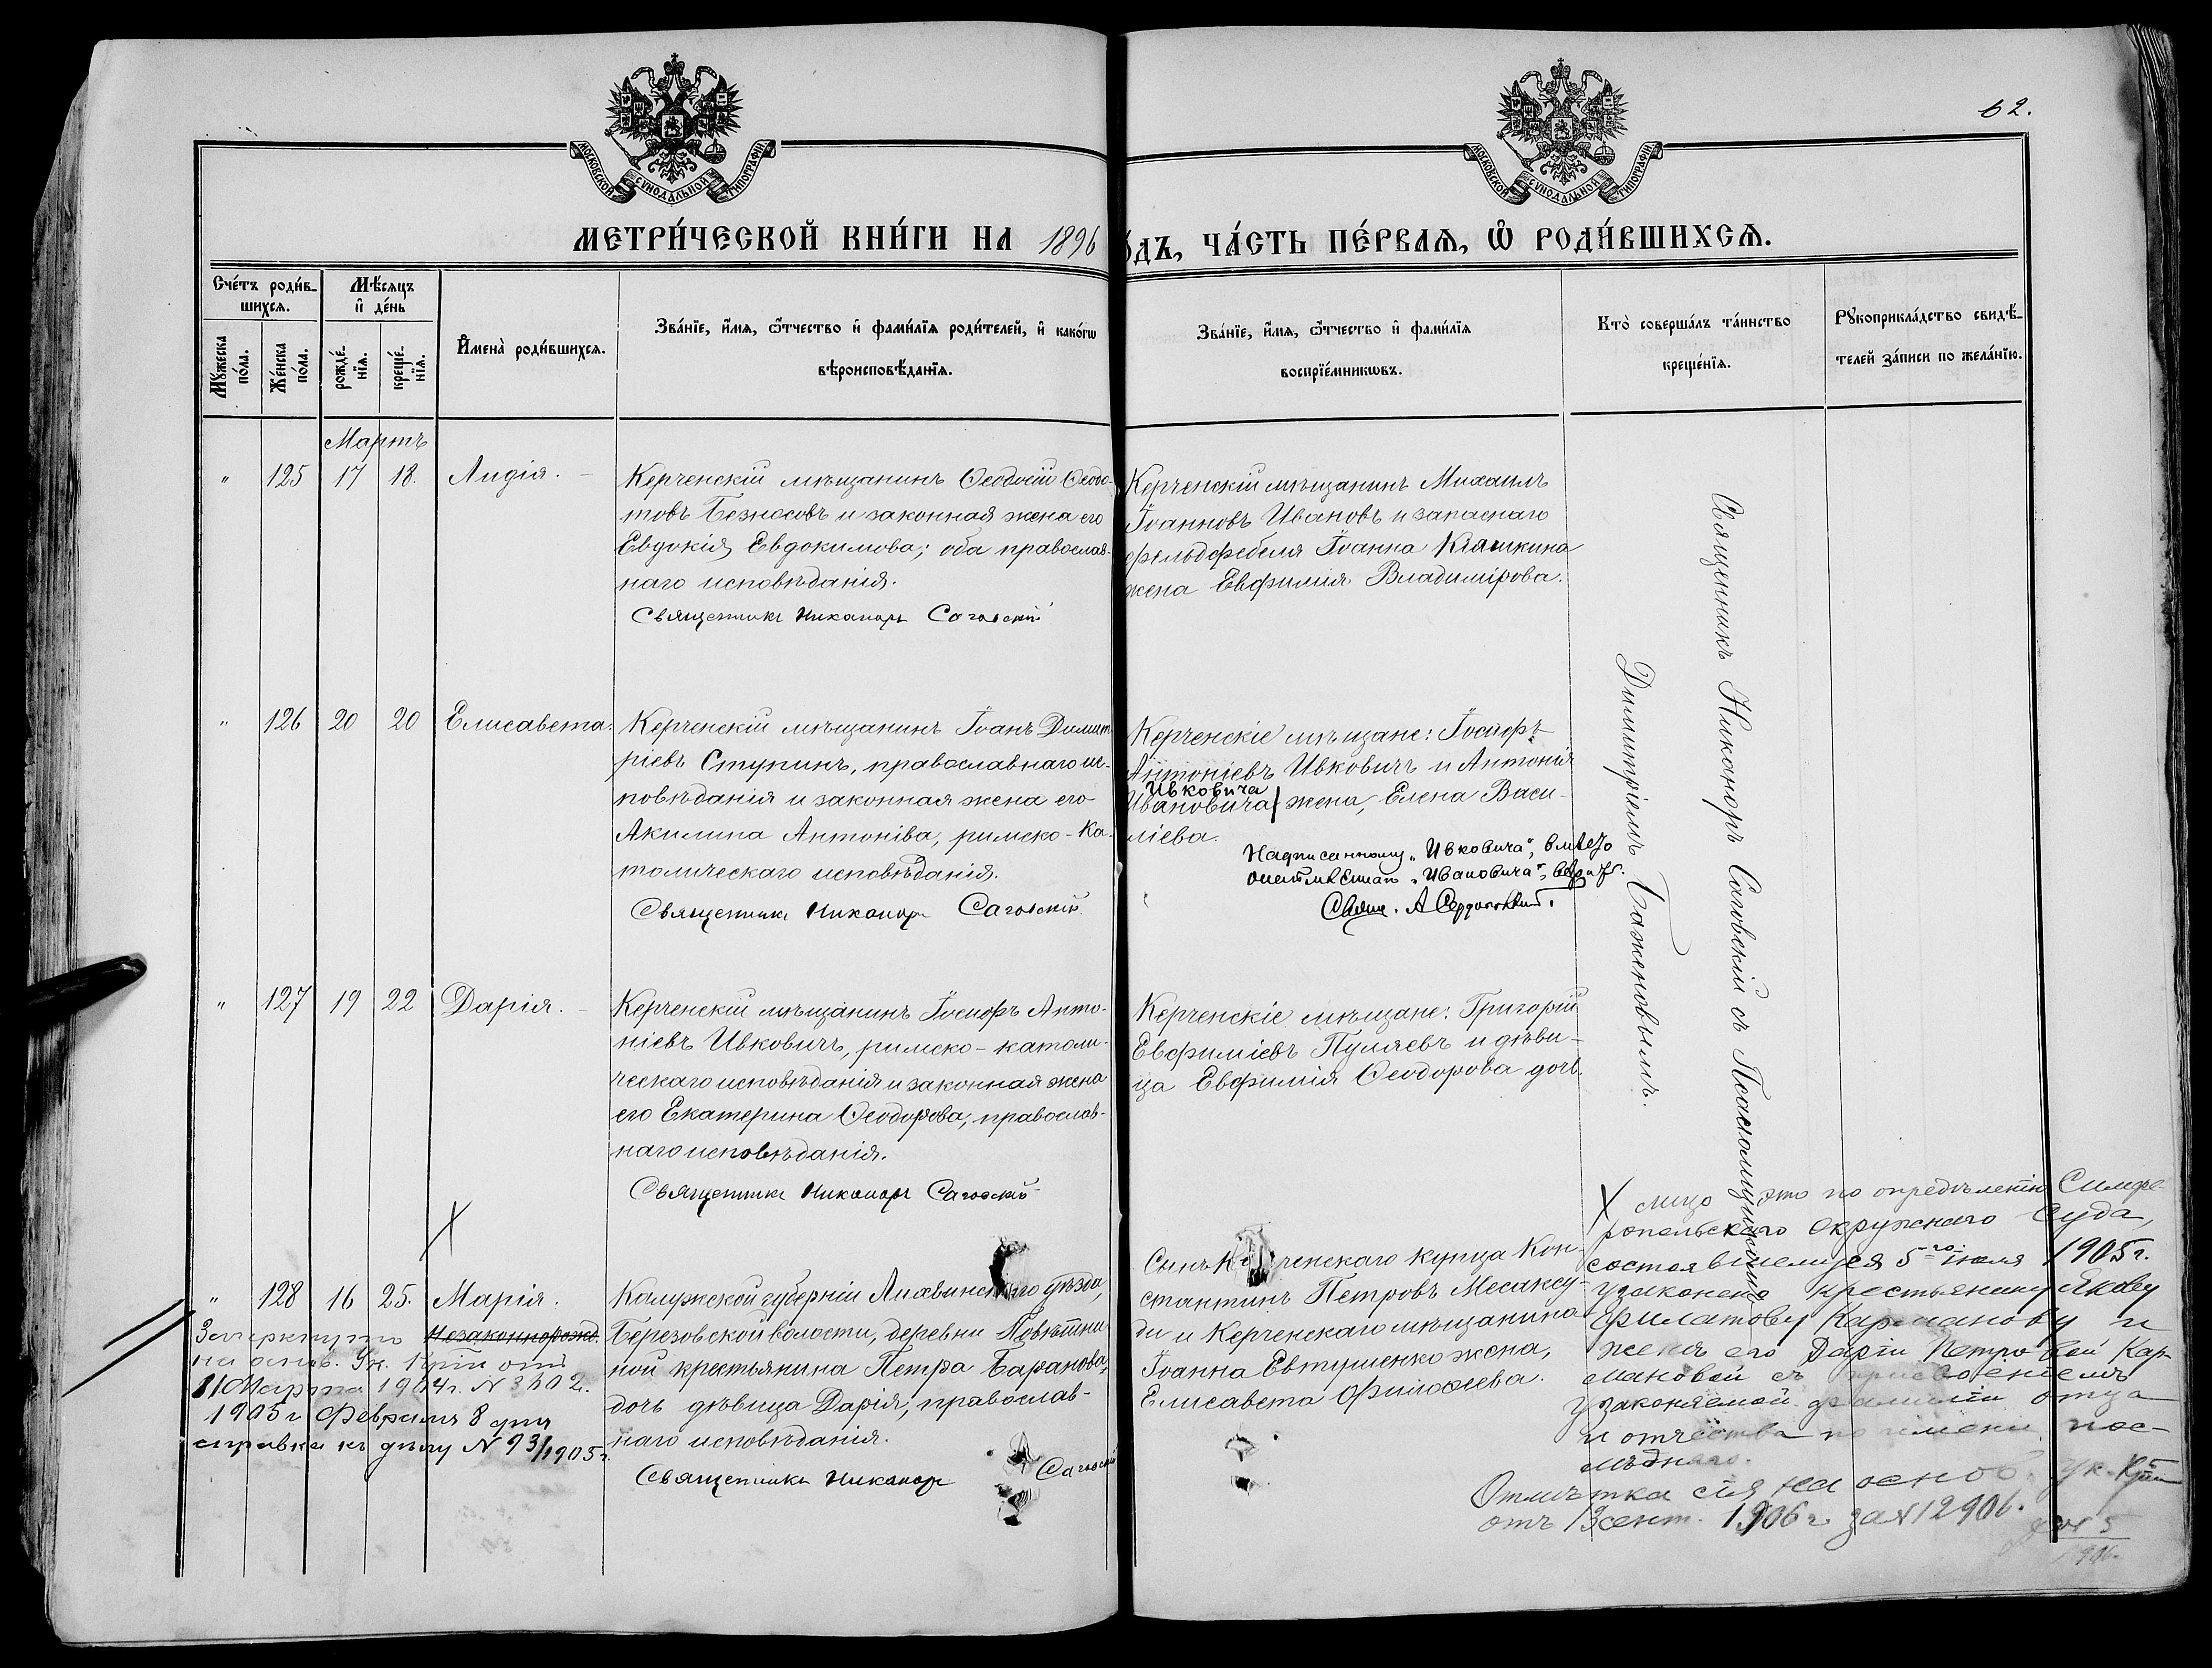 62.
МОСКОВСКОЙ СУНОДАЛЬНОЙ ТИПОГРАФІИ
МОСКОВСКОЙ СУНОДАЛЬНОЙ ТИПОГРАФІИ
МЕТРИ́ЧЕСКОЙ КНИ́ГИ НА 1896
ѻ́ДЪ, ЧА́СТЬ ПЕ́РВАѦ, Ѡ҆ РОДИ́ВШИХСѦ.
Сче́тъ роди́в-
шихсѧ.
Мꙋ́жеска по́ла.
Же́нска по́ла.
Мѣ́сѧцъ
и҆ де́нь
рожде́-
нїѧ.
креще́-
нїѧ.
И҆мена̀ роди́вшихсѧ.
Зва́нїе, и҆́мѧ, ѻ҆́тчество и҆ фами́лїѧ роди́телей, и҆ како́гѡ
вѣроисповѣ́данїѧ.
Зва́нїе, и҆́мѧ, ѻ҆́тчество и҆ фами́лїѧ
воспрїе́мникѡвъ.
Кто̀ соверша́лъ та́инство
креще́нїѧ.
Рꙋкоприкла́дство свидѣ́-
телей за́писи по жела́нїю.
Мартъ
" 125 17 18. Лидія. -
Керченскій мѣщанинъ Ѳеодосій Ѳеодо-
товъ Безносовъ и законная жена его
Евдокія Евдокимова; оба православ-
наго исповѣданія.
Священникъ Никаноръ Саговскій
Керченскій мѣщанинъ Михаилъ
Іоанновъ Ивановъ и запаснаго
фельдфебеля Іоанна Кляшкина
жена Евфимія Владимірова.
" 126 20 20 Елисавета.
Керченскій мѣщанинъ Іоанъ Димит-
ріевъ Ступинъ, православнаго ис-
повѣданія и законная жена его
Акилина Антоніва, римско-ка-
толическаго исповѣданія.
Священникъ Никаноръ Саговскій
Керченскіе мѣщане: Іосифъ
Антоніевъ Ивковичъ и Антонія
Ивковича
Ивановича жена, Елена Васи-
ліева.
Надписанному „Ивковича", вмѣсто
„Ивановича", вѣрить.
Свящ. А Сердобольскій.
" 127 19 22 Дарія. -
Керченскій мѣщанинъ Іосифъ Анто-
ніевъ Ивковичъ, римско-католи-
ческаго исповѣданія и законная жена
его Екатерина Ѳеодорова, православ-
наго исповѣданія.
Священникъ Никаноръ Саговскій
Керченскіе мѣщане: Григорій
Евфиміевъ Пуляевъ и дѣви-
ца Евфимія Ѳеодорова дочь.
Х
" 128 16 25. Марія.
Незаконнорожд.
Зачеркнуто
на основ. Ук. Крти отъ
11 Марта 1904г. N 3402.
1905 г Февраля 8 дня
справка къ дѣлу N 93/1905г.
Калужской губерніи Лихвинскаго уѣзда,
Березовской волости, деревни
крестьянина Петра Баранова,
дочь дѣвица Дарія, православ-
наго исповѣданія.
Священникъ Никаноръ Саговскій
Сынъ Керченскаго купца Кон-
стантинъ Петровъ Месаксу-
ди и Керченскаго мѣщанина
Іоанна Евтушенко жена,
Елисавета
Священникъ Никаноръ Саговскій съ Псаломщикомъ
Димитріемъ Баженовымъ.
Х лицо это по опредѣленію Симфе-
ропольскаго Окружнаго Суда,
состоявшемуся 5го іюля 1905г.
узаконено крестьянину Якову
Филатову Карманову и
женѣ его Даріи Петровой Кар-
мановой съ присвоеніемъ
узаконяемой фамиліи отца
и отчества по имени пос-
лѣдняго.
Отмѣтка сія на основ. Ук. Крти
отъ 13 сент. 1906 г. за N 12906.
N 5
1906.